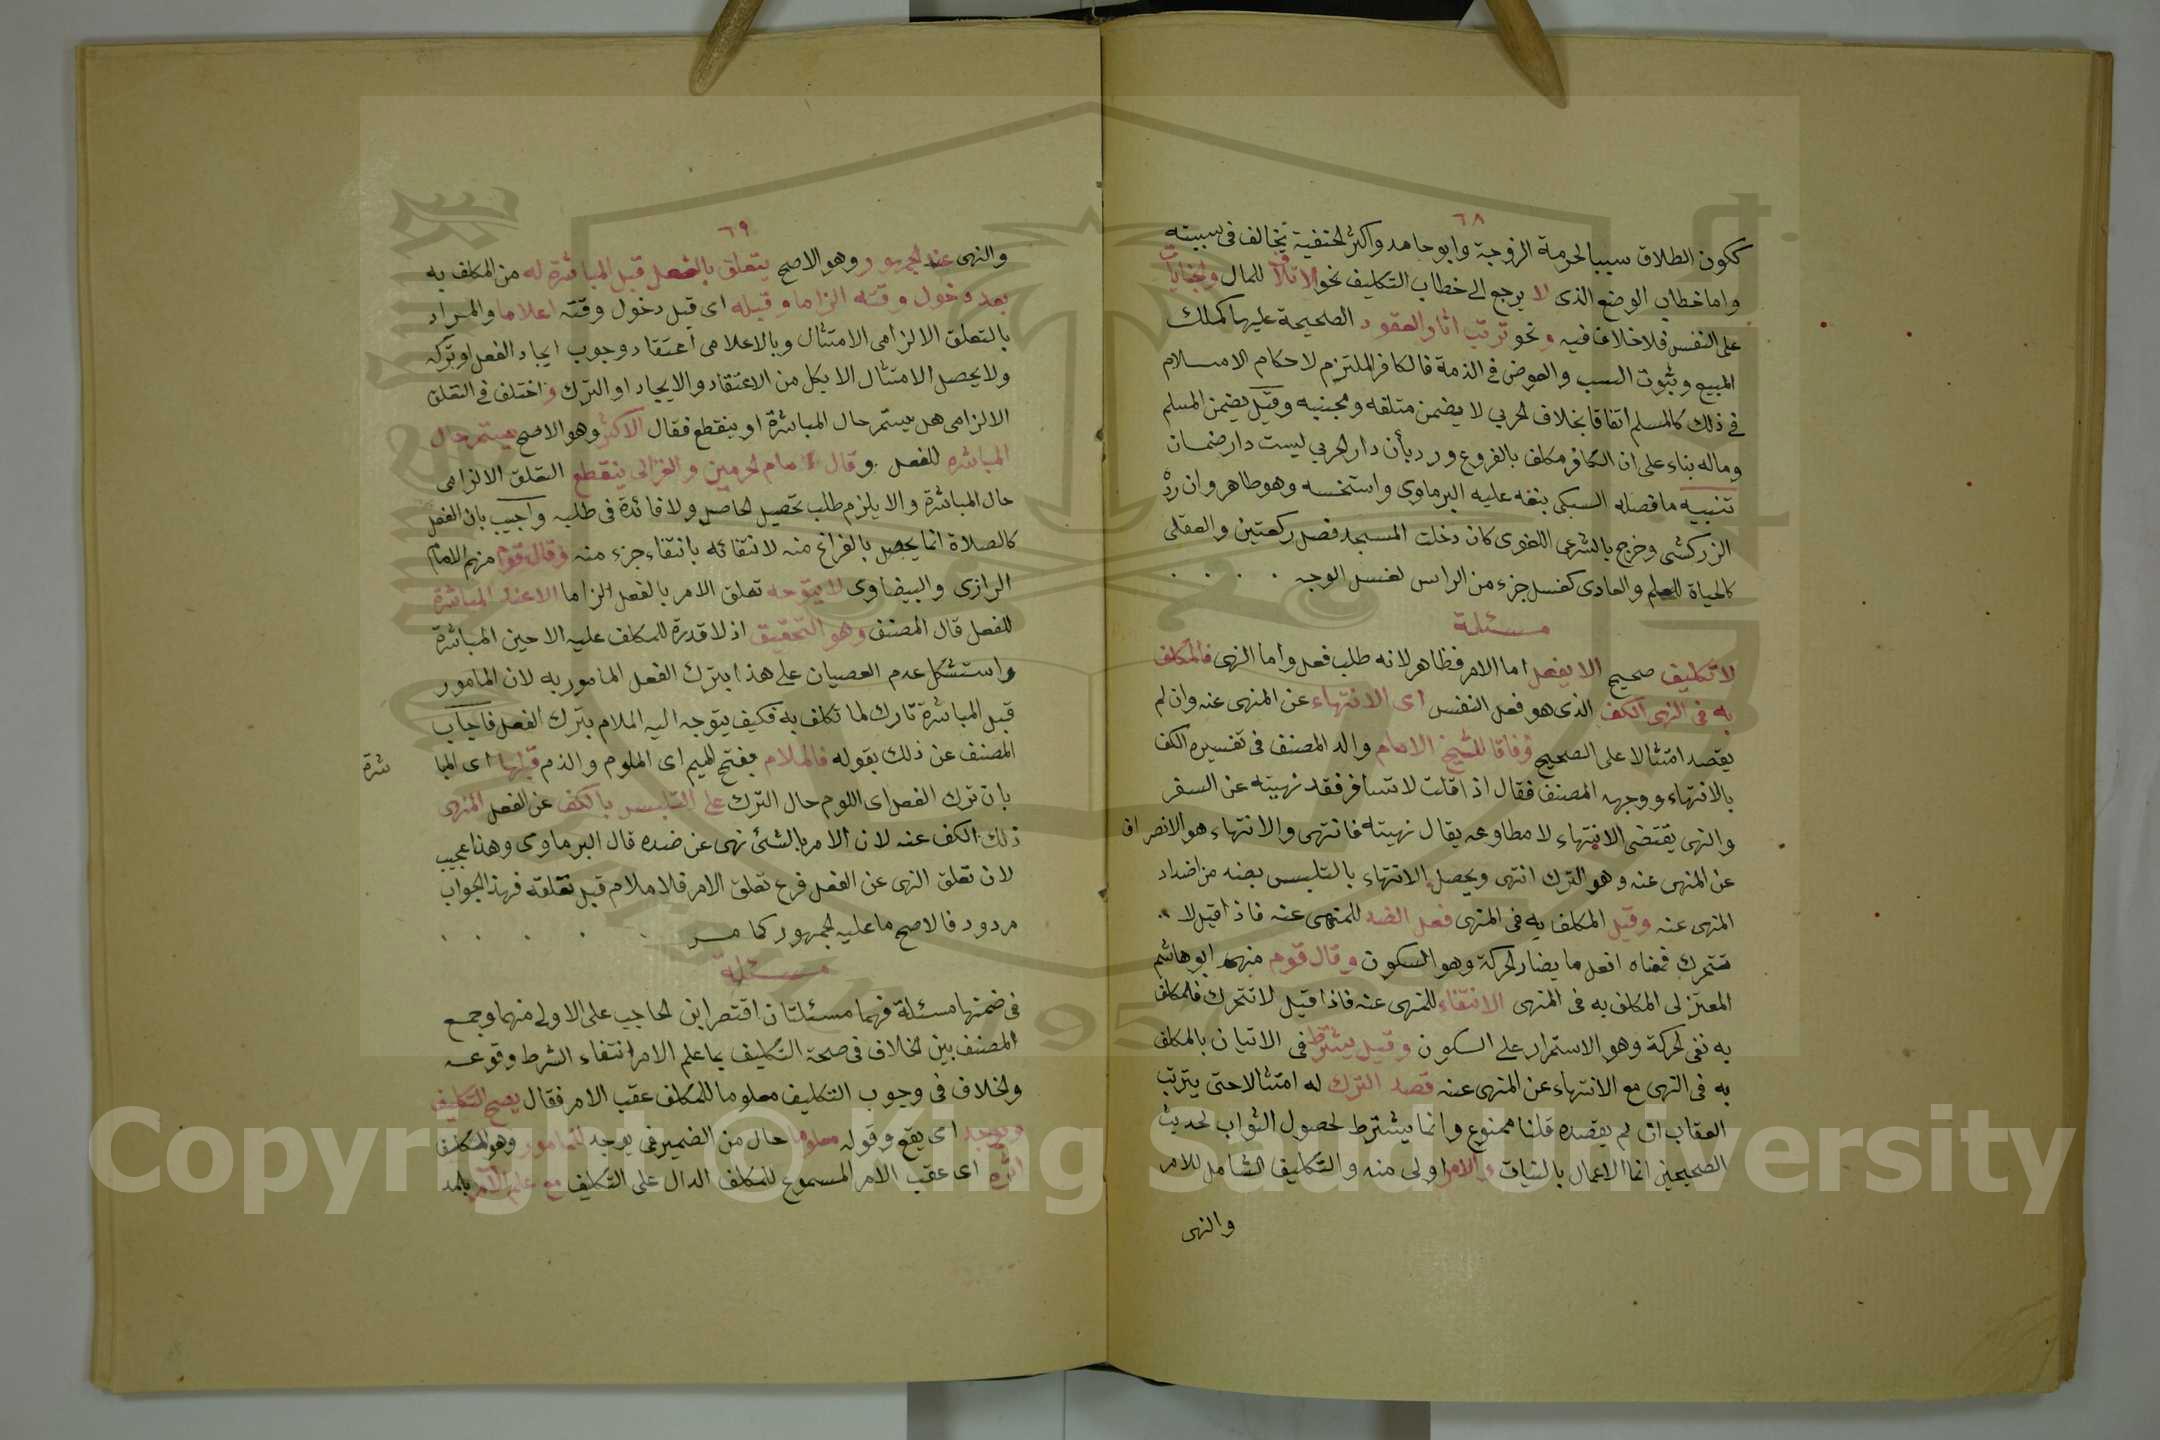 ٦٨
ككون الطلاق سببا لحرمة الزوجة وابو حامد واكثر الحنفية يخالف في سببيته
واما خطاب الوضع الذى لا يرجع الى خطاب التكليف نحو الاتلاف للمال والجنايات
على النفس فلا خلاف فيه ونحو ترتب اثار العقود الصحيحة عليها كملك
المبيع وثبوت السبب والعوض في الذمة فالكافر الملتزم لاحكام الاسلام
في ذلك كالمسلم اتفاقا بخلاف الحربي لا يضمن متلفه ومجنيه وقيل يضمن المسلم
وماله بناء على ان الكافر مكلف بالفروع ورد بأن دار الحربي ليست دار ضمان
تنبيه ما فصله السبكى بنقه عليه البرماوى واستحسنه وهو ظاهر وان ردّه
الزركشى وخرج بالشرعى اللغوى كان دخلت المسجد فصل ركعتين والعقلى
كالحياة للعلم والعادى كغسل جزء من الراس لغسل الوجه
مسئلة
لا تكليف صحيح الا بفعل اما الامر فظاهر لانه طلب فعل واما النهى فالمكلف
به فى النهى الكف الذى هو فعل النفس اى الانتهاء عن المنهى عنه وان لم
يقصد امتثالا على الصحيح وفاقا للشيخ الامام والد المصنف فى تفسيره الكف
بالانتهاء ووجهه المصنف فقال اذا قلت لا تسافر فقد نهيته عن السفر
والنهى يقتضى الانتهاء لا مطاوعه يقال نهيته فانتهى والانتهاء هو الانصراف
عن المنهى عنه وهو الترك انتهى ويحصل الانتهاء بالتلبس بضده من اضداد
المنهى عنه وقيل المكلف به فى المنهى فعل الضد للمنهى عنه فاذا قيل لا
تتحرك فمعناه افعل ما يضاد الحركة وهو السكون وقال قوم منهم ابو هاشم
المعتزلى المكلف به فى المنهى الانتفاء للمنهى عنه فاذا قيل لا تتحرك فالمكلف
به نفى الحركة وهو الاستمرار على السكون وقيل يشترط فى الاتيان بالمكلف
به فى النهى مع الانتهاء عن المنهى عنه قصد الترك له امتثالا حتى يترتب
العقاب ان لم يقصده قلنا ممنوع وانما يشترط لحصول الثواب لحديث
الصحيحين انما الاعمال بالنيات والامر اولى منه والتكليف الشامل للامر
والنهى
٦٩
والنهى عند الجمهور وهو الاصح يتعلق بالفعل قبل المباشرة له من المكلف به
بعد دخول وقته الزاما وقبله اى قبل دخول وقته اعلاما والمراد
بالتعلق الالزامى الامتثال وبالاعلامى اعتقاد وجوب ايجاد الفعل او تركه
ولا يحصل الامتثال الا بكل من الاعتقاد والايجاد او الترك واختلف فى التعلق
الالزامى هل يستمر حال المباشرة او ينقطع فقال الاكثر وهو الاصح يستمر حال
المباشرة للفعل وقال امام الحرمين والغزالى ينقطع التعلق الالزامى
حال المباشرة والا يلزم طلب تحصيل الحاصل ولا فائدة فى طلبه واجيب بان الفعل
كالصلاة انما يحصل بالفراغ منه لانتفائه بانتفاء جزء منه وقال قوم منهم الامام
الرازى والبيضاوى لا يتوجه تعلق الامر بالفعل الزاما الا عند المباشرة
للفعل قال المصنف وهو التحقيق اذ لا قدرة للمكلف عليه الا حين المباشرة
واستشكل عدم العصيان على هذا بترك الفعل المامور به لان المامور
قبل المباشرة تارك لما تكلف به فكيف يتوجه اليه الملام بترك الفعل فاجاب
المصنف عن ذلك بقوله فالملام بفتح الميم اى الملوم والذم قبلها اى المبا شرة
بان ترك الفعل اى اللوم حال الترك على التلبس بالكف عن الفعل المنهى
ذلك الكف عنه لان الامر بالشئ نهى عن ضده قال البرماوى وهذا عجيب
لان تعلق النهى عن الفعل فرع تعلق الامر فلا ملام قبل تعلقه فهذا الجواب
مردود فالاصح ما عليه الجمهور كما مر
مسئلة
فى ضمنها مسئلة فهما مسئلتان اقتصر ابن الحاجب على الاولى منهما وجمع
المصنف بين الخلاف فى صحة التكليف بما علم الامر انتفاء الشرط وقوعه
والخلاف فى وجوب التكليف معلوما للمكلف عقب الامر فقال يصح التكليف
ويوجد اى يقع وقوله معلوما حال من الضمير فى يوجد للمامور وهو المكلف
اثره اى عقب الامر المسموع للمكلف الدال على التكليف مع علم الآمر
Copyright © King Saud University
1957